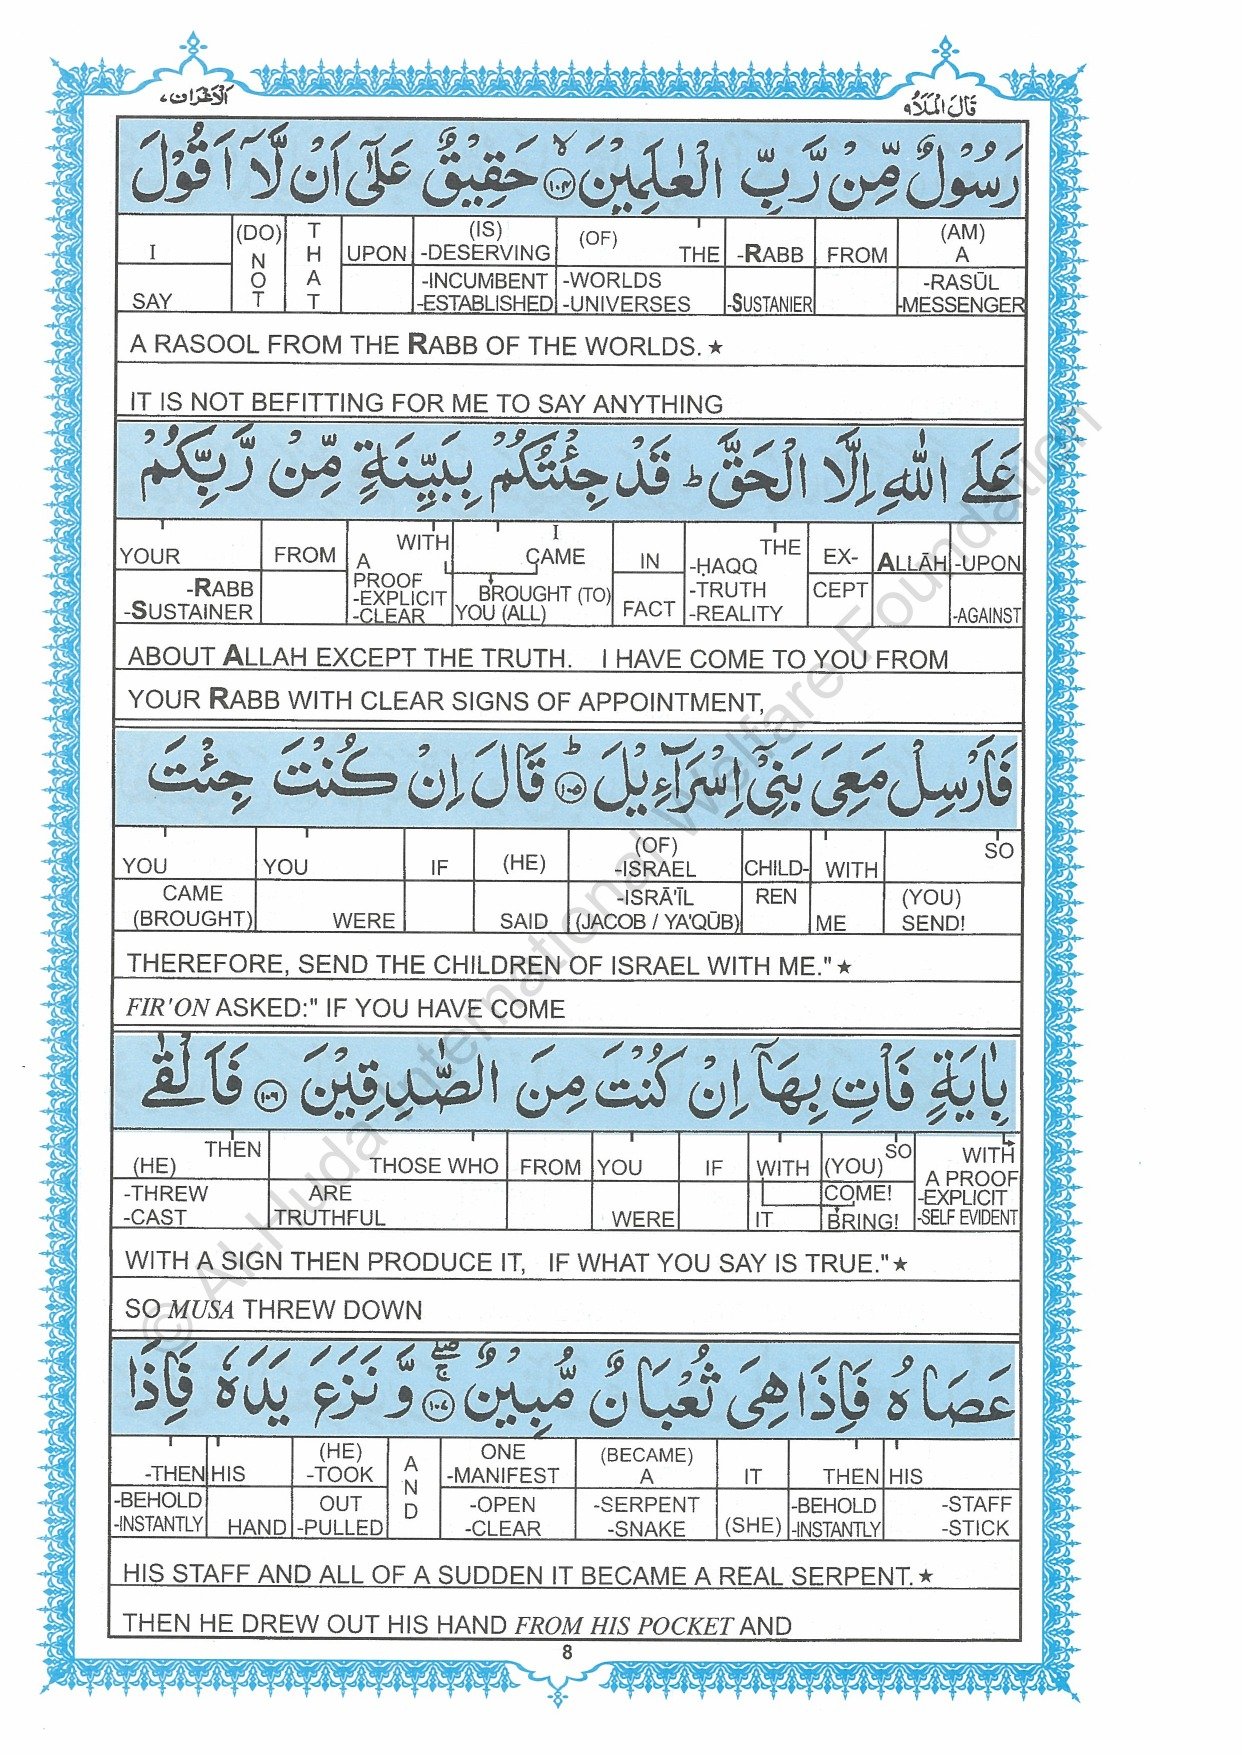 الاعراف ٧
قَالَ الْمَلَأُ ٩
رَسُوْلٌ مِّنْ رَّبِّ الْعٰلَمِيْنَ ۙ ١٠٤ حَقِيْقٌ عَلٰۤى اَنْ لَّاۤ اَقُوْلَ
I (DO) THAT UPON (IS) (OF) THE -RABB FROM (AM)
NOT -DESERVING A
SAY -INCUMBENT -WORLDS -RASŪL
-ESTABLISHED -UNIVERSES -SUSTANIER -MESSENGER
A RASOOL FROM THE RABB OF THE WORLDS. ★
IT IS NOT BEFITTING FOR ME TO SAY ANYTHING
عَلَى اللّٰهِ اِلَّا الْحَقَّ ؕ قَدْ جِئْتُكُمْ بِبَيِّنَةٍ مِّنْ رَّبِّكُمْ
YOUR FROM WITH I IN THE EX- ALLĀH -UPON
A CAME -ḤAQQ
-RABB PROOF BROUGHT (TO) -TRUTH CEPT
-SUSTAINER -EXPLICIT YOU (ALL) FACT -REALITY -AGAINST
-CLEAR
ABOUT ALLAH EXCEPT THE TRUTH. I HAVE COME TO YOU FROM
YOUR RABB WITH CLEAR SIGNS OF APPOINTMENT,
فَاَرْسِلْ مَعِىَ بَنِىْۤ اِسْرَآءِيْلَ ؕ ١٠٥ قَالَ اِنْ كُنْتَ جِئْتَ
YOU YOU IF (HE) (OF) CHILD- WITH SO
-ISRAEL
CAME -ISRĀ'ĪL REN (YOU)
(BROUGHT) WERE SAID (JACOB / YA'QŪB) ME SEND!
THEREFORE, SEND THE CHILDREN OF ISRAEL WITH ME." ★
FIR'ON ASKED:" IF YOU HAVE COME
بِاٰيَةٍ فَاْتِ بِهَاۤ اِنْ كُنْتَ مِنَ الصّٰدِقِيْنَ ١٠٦ فَاَلْقٰى
THEN THOSE WHO FROM YOU IF WITH (YOU) SO WITH
(HE) A PROOF
-THREW ARE COME! -EXPLICIT
-CAST TRUTHFUL WERE IT BRING! -SELF EVIDENT
WITH A SIGN THEN PRODUCE IT, IF WHAT YOU SAY IS TRUE." ★
SO MUSA THREW DOWN
عَصَاهُ فَاِذَا هِىَ ثُعْبَانٌ مُّبِيْنٌ ۚۖ ١٠٧ وَّنَزَعَ يَدَهٗ فَاِذَا
-THEN HIS (HE) AND ONE (BECAME) IT THEN HIS
-TOOK -MANIFEST A
-BEHOLD OUT -OPEN -SERPENT -BEHOLD -STAFF
-INSTANTLY HAND -PULLED -CLEAR -SNAKE (SHE) -INSTANTLY -STICK
HIS STAFF AND ALL OF A SUDDEN IT BECAME A REAL SERPENT. ★
THEN HE DREW OUT HIS HAND FROM HIS POCKET AND
8
© Al-Huda International Welfare Foundation